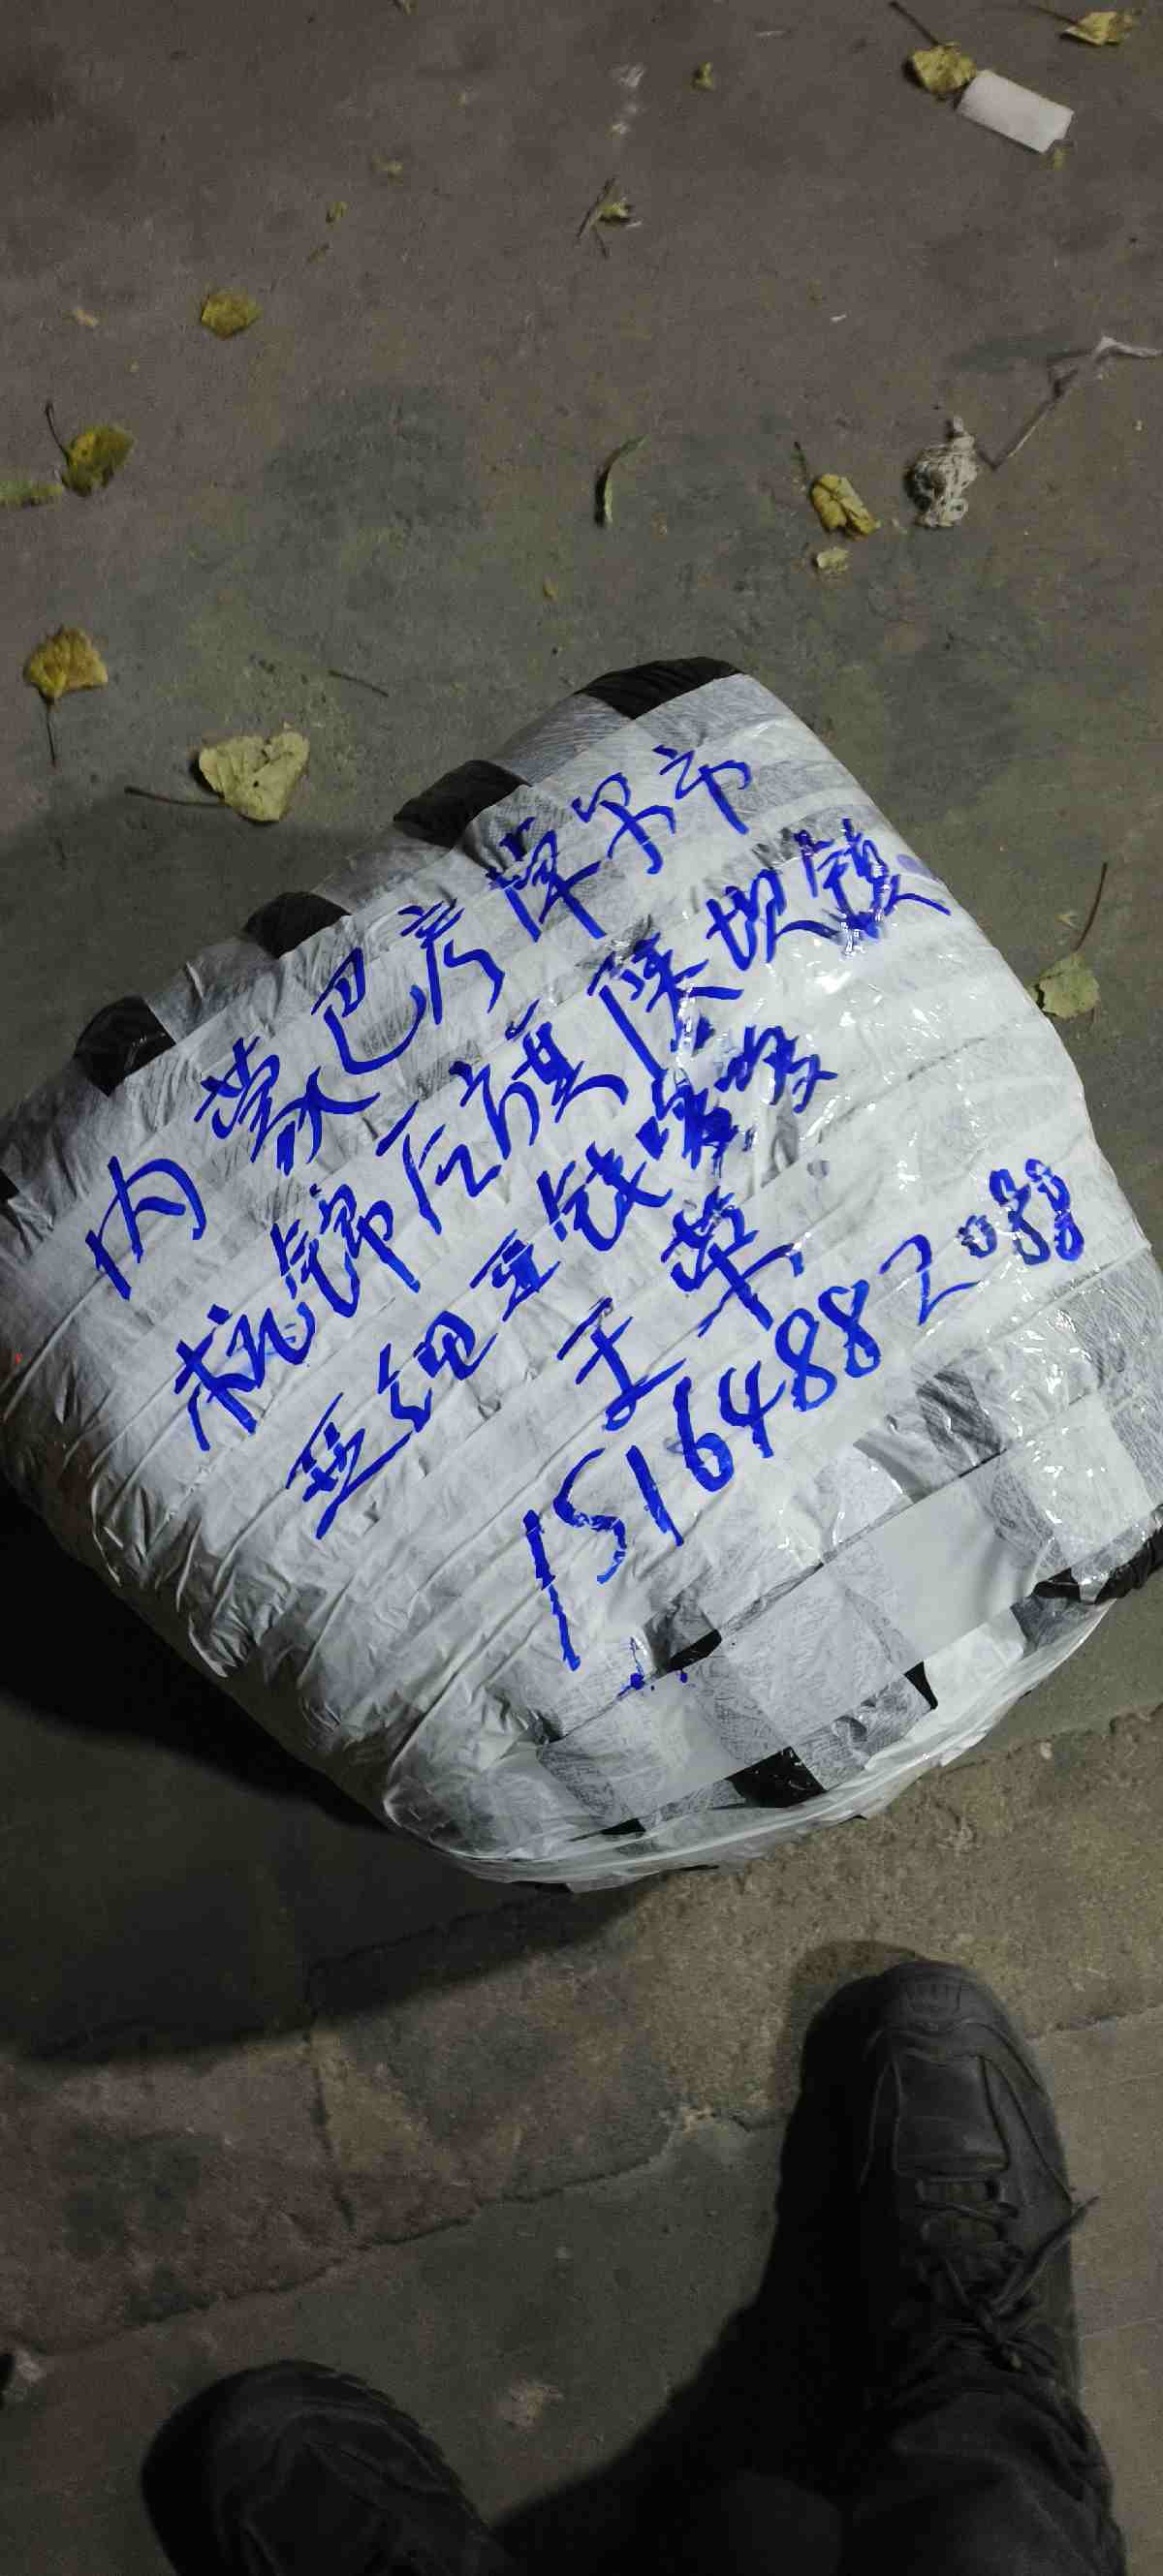 内蒙巴彦淖尔市
杭锦后旗陕坝镇
王华
15164882088